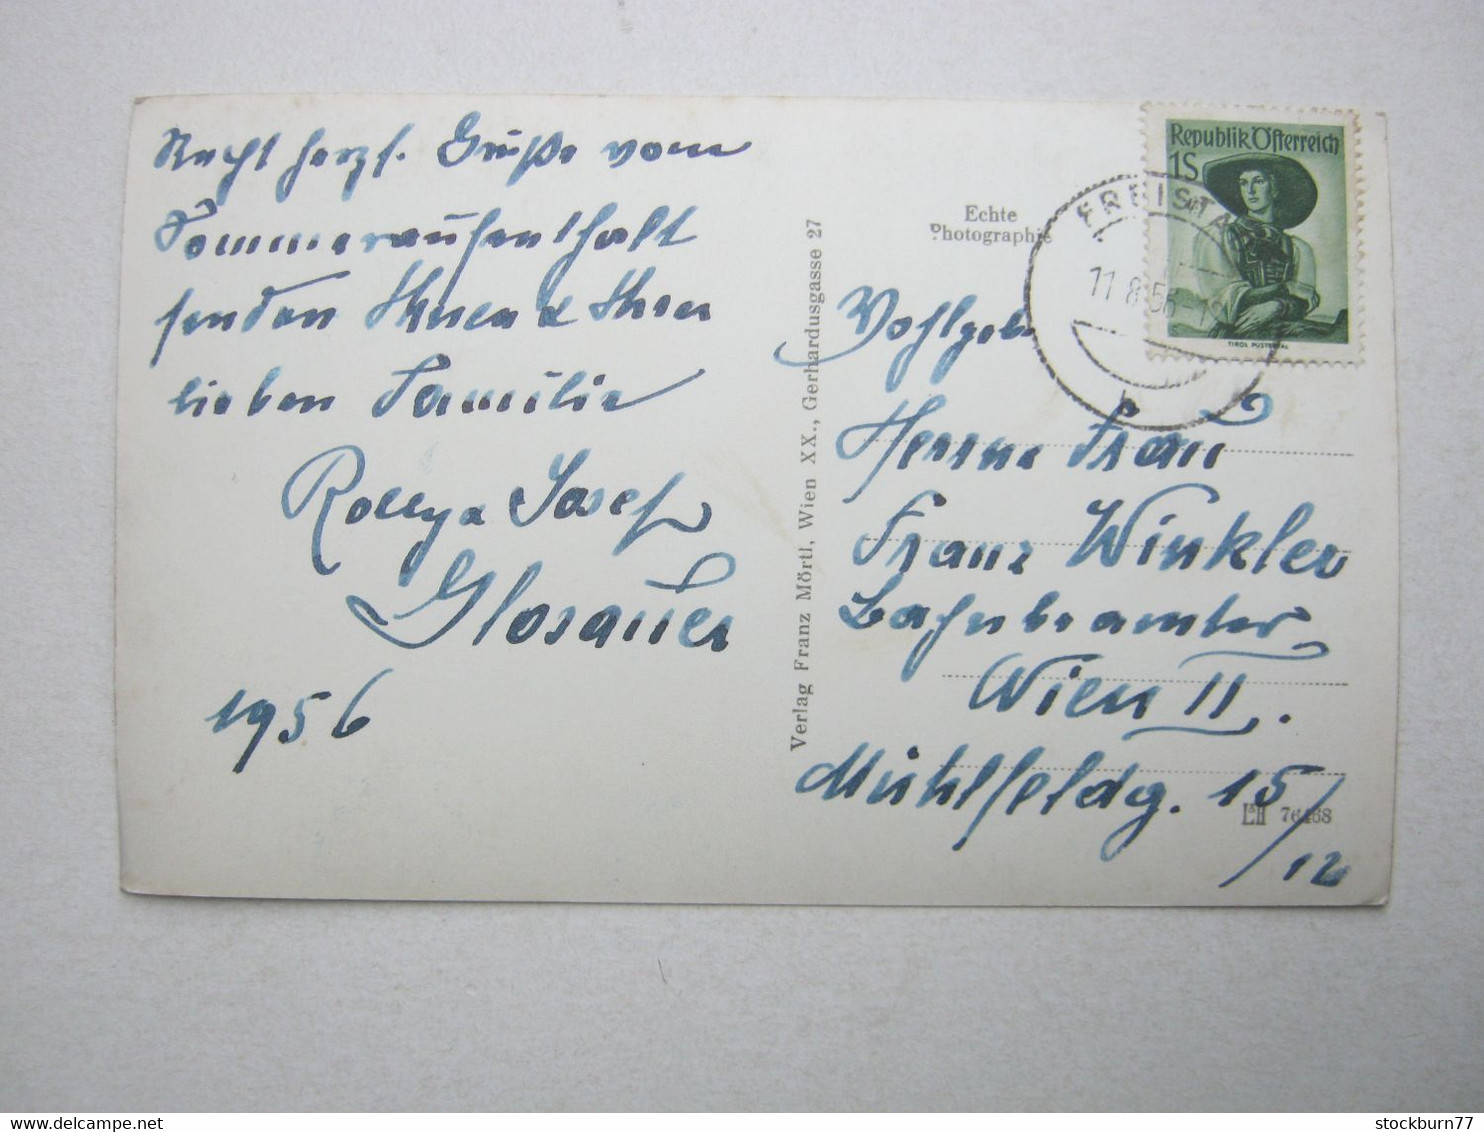 Recht herzl. Grüße vom
Sommeraufenthalt
senden Ihnen & Ihrer
lieben Familie
Josef
1956
Verlag Franz Mörtl, Wien XX., Gerhardusgasse 27
Echte
Photographie
Republik Österreich
1S
TIROL PUSTERTAL
FREISTA
11.8.56
Wohlgeb
Herrn Frau
Franz Winkler
Bahnbeamter
Wien II.
Mühlfeldg. 15/
12
76468
stockburn77